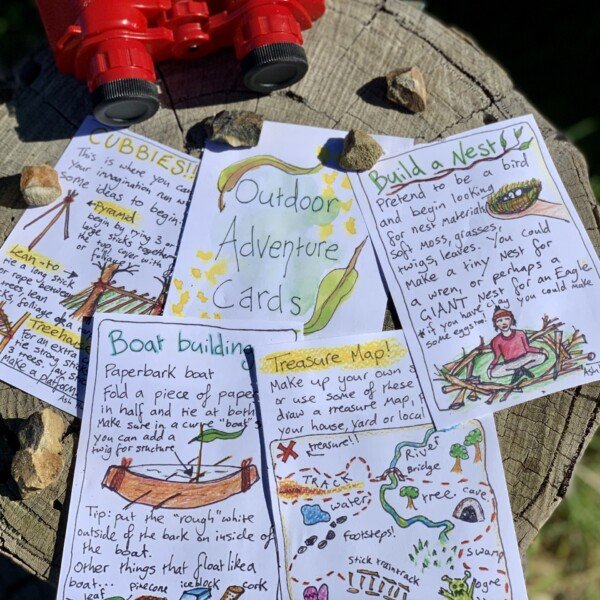 CUBBIES!!
This is where you can
your imagination run
some ideas to begin:
Pyramid
begin by tying 3 or
large sticks together
the top cover with
foliage
Lean-to
tie a long stick
or rope between
trees lean
sticks
Treehouse
For an extra
tie strong sticks
3 trees
Make a platform
Outdoor
Adventure
Cards
Build a Nest
Pretend to be a bird
and begin looking
for nest materials
soft moss, grasses,
twigs, leaves. You could
make a tiny nest for
a wren, or perhaps a
GIANT Nest for an Eagle
*if you have clay you could make
some eggs too.
Boat building
Paperbark boat
Fold a piece of paper
in half and tie at both
Make sure in a curve "boat" s
you can add a
twig for structure
Tip: put the "rough" white
outside of the bark on inside of
the boat.
Other things that float like a
boat...
leaf
pinecone
iceblock
cork
Treasure Map!
Make up your own s
or use some of these
draw a treasure map,
your house, yard or local
treasure!!
River
Bridge
TRACK
water
tree
cave
footsteps!
swamp
Stick traintrack
ogre